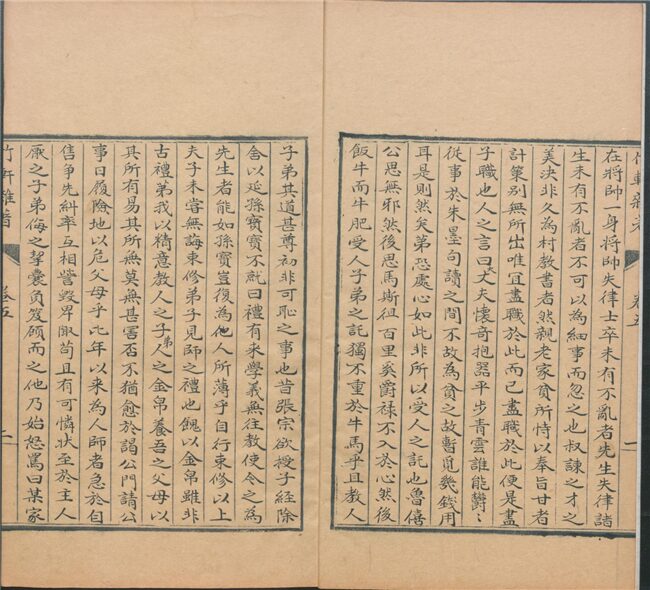 竹軒雜著 卷五 一
在將帥一身將帥失律士卒未有不亂者先生失律諸
生未有不亂者不可以為細事而忽之也叔諫之才之
美決非久為村教書者然親老家貧所恃以奉旨甘者
計策別無所出唯宜盡職於此而已盡職於此便是盡
子職也人之言曰丈夫懷奇抱器平步青雲誰能欝〻
從事於朱墨句讀之間不故為貧之故暫覓幾錢用
耳是則然矣第恐處心如此非所以受人之託也魯僖
公思無邪然後思馬斯徂百里奚爵祿不入於心然後
飯牛而牛肥受人子弟之託獨不重於牛馬乎且教人
子弟其道甚尊初非可恥之事也昔張宗欲授子經除
舍以延孫寶寶不就曰禮有来學義無往教使令之為
先生者能如孫寶豈復為他人所薄乎自行束修以上
夫子未嘗無誨束修弟子見師之禮也餽以金帛雖非
古禮弟我以積意教人之子弟之金帛養吾之父母以
其所有易其所無莫無甚害否不猶愈於謁公門請公
事日履險地以危父母乎比年以来為人師者急於自
售争先糾率互相營毀卑陬苟且有可憐狀至於主人
厭之子弟侮之挈囊負笈顧而之他乃始怒罵曰某家
竹軒雜著 卷五 二